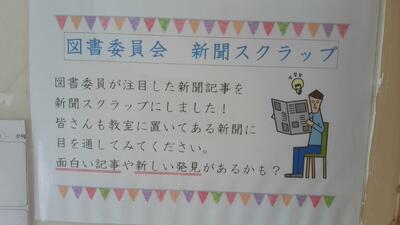 図書委員会　新聞スクラップ
図書委員が注目した新聞記事を
新聞スクラップにしました！
皆さんも教室に置いてある新聞に
目を通してみてください。
面白い記事や新しい発見があるかも？